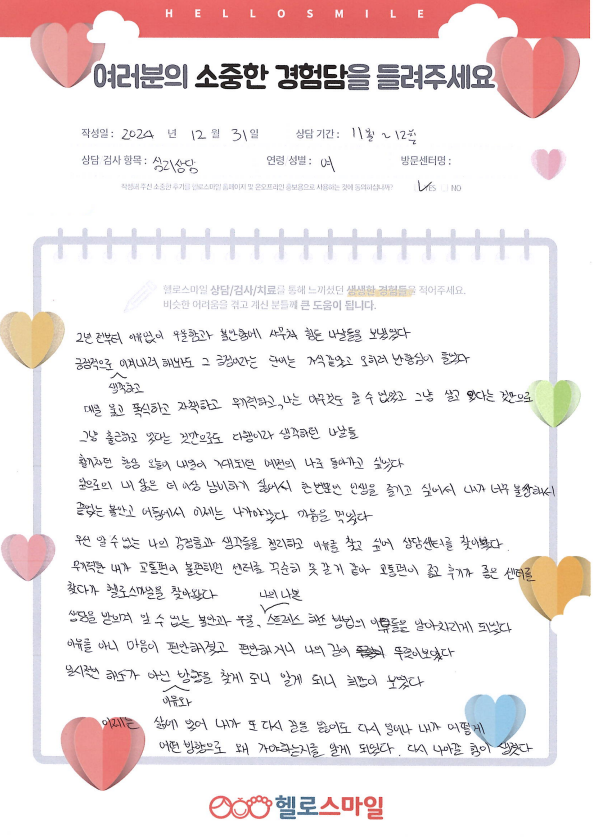 HELLOSMILE
여러분의 소중한 경험담을 들려주세요
작성일 : 2024 년 12 월 31 일 상담 기간 : 11월 ~ 12월
상담 검사 항목 : 심리상담 연령 성별 : 여 방문센터명 :
작성해 주신 소중한 후기를 헬로스마일 홈페이지 및 온오프라인 홍보용으로 사용하는 것에 동의하십니까? YES NO
헬로스마일 상담/검사/치료를 통해 느끼셨던 생생한 경험들을 적어주세요.
비슷한 어려움을 겪고 계신 분들께 큰 도움이 됩니다.
2년 전부터 이유없이 우울함과 불안함에 사무쳐 힘든 나날들을 보냈었다
긍정적으로 이겨내려 해봐도 그 긍정이라는 단어는 가식같았고 오히려 반항심이 들었다
생각하고
매일 울고 폭식하고 자책하고 무기력하고, 나는 아무것도 할 수 없었고 그냥 살고 있다는 것만으로
그냥 출근하고 있다는 것만으로도 다행이라 생각하던 나날들
활기차던 항상 오늘이 내일이 기대되던 예전의 나로 돌아가고 싶었다
앞으로의 내 삶은 더 이상 낭비하기 싫어서 한번뿐인 인생을 즐기고 싶어서 내가 너무 불쌍해서
끝없는 불안과 어둠에서 이제는 나가야겠다 마음을 먹었다
우선 알 수 없는 나의 감정들과 생각들을 정리하고 이유를 찾고 싶어 상담센터를 찾아봤다.
무기력한 내가 교통편이 불편하면 센터를 꾸준히 못 갈거 같아 교통편이 좋고 후기가 좋은 센터를
찾다가 헬로스마일을 찾아왔다
나의 나쁜
상담을 받으며 알 수 없는 불안과 우울, 스트레스 해소 방법의 이유들을 알아차리게 되었다
이유를 아니 마음이 편안해졌고 편안해지니 나의 길이 뚜렷이보였다
일시적인 해소가 아닌 방향을 찾게 되니 알게 되니 희망이 보였다
이유와
이제는 삶에 있어 내가 또 다시 길을 잃어도 다시 일어나 내가 어떻게
어떤 방향으로 왜 가야하는지를 알게 되었다. 다시 나아갈 힘이 생겼다
헬로스마일